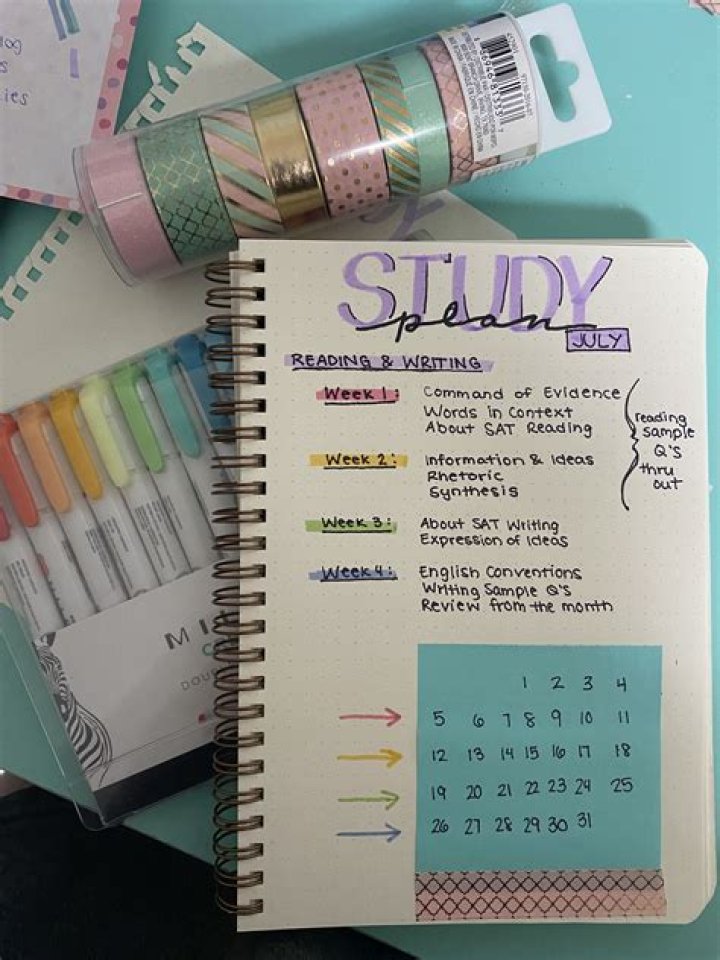 ies
STUDY
plan
JULY
READING & WRITING
Week 1: Command of Evidence
Words in Context
About SAT Reading
Week 2: Information & Ideas
Rhetoric
Synthesis
reading
sample
Q's
thru
out
Week 3: About SAT Writing
Expression of Ideas
Week 4: English Conventions
Writing Sample Q's
Review from the month
1 2 3 4
5 6 7 8 9 10 11
12 13 14 15 16 17 18
19 20 21 22 23 24 25
26 27 28 29 30 31